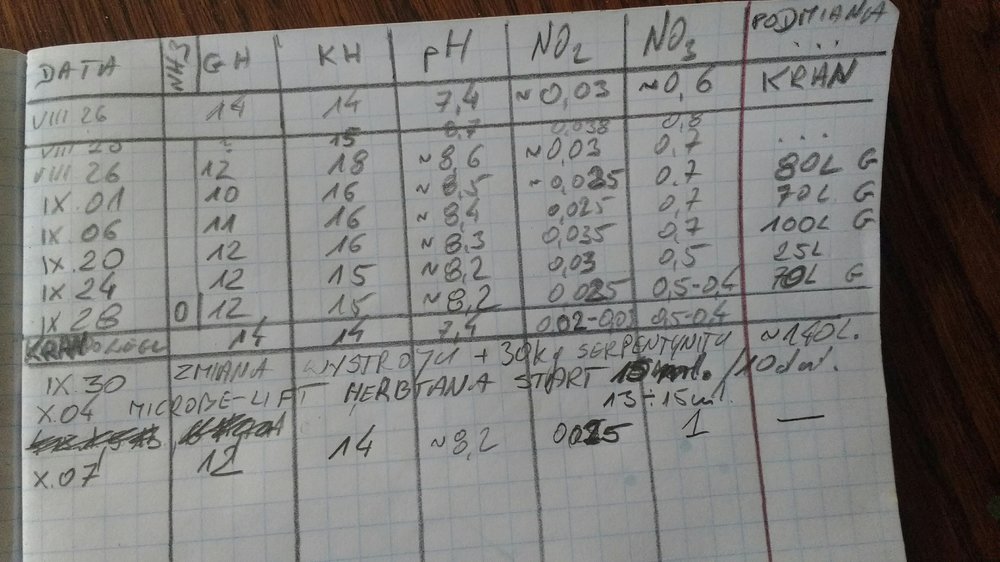 DATA NH3 GH KH pH NO2 NO3 PODMIANA
VIII 26 14 14 7,4 ~0,03 ~0,6 KRAN
15 8,7 0,038 0,8 ...
VIII 26 12 18 ~8,6 ~0,03 0,7 80L G
IX.01 10 16 ~8,5 ~0,025 0.7 70L G
IX 06 11 16 ~8,4 0,025 0,7 100L G
IX.20 12 16 ~8,3 0,035 0,7 25L
IX 24 12 15 ~8,2 0,03 0,5 70L G
IX 28 0 12 15 ~8,2 0,025 0,5-0,4
KRAN 14 14 7,4 0,02-0,03 0,5-0,4
IX.30 ZMIANA WYSTROJU + 30kg SERPENTYNITU ~140L.
X.04 MICROBE-LIFT HERBTANA START 15ml./10dni.
13÷15ml.
X.07 12 14 ~8,2 0,025 1 —